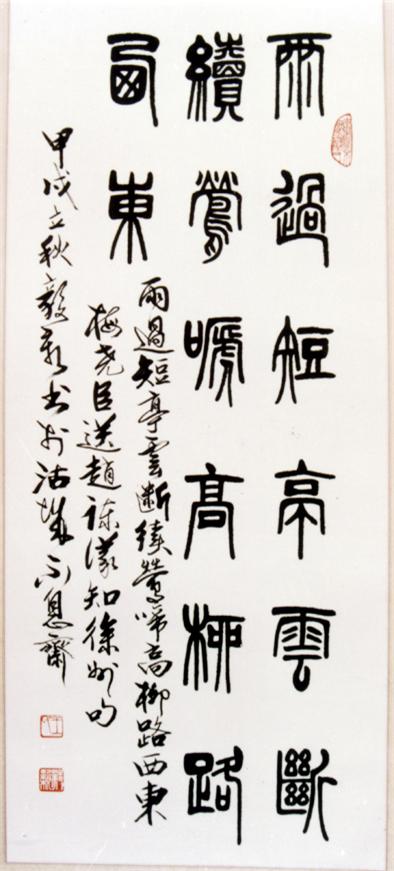 雨過短亭雲斷
續鶯嗁高柳路
西東
雨過短亭雲断續鶯啼高柳路西東
梅堯臣送趙諫議知徐州句
甲戌立秋毅敏書於沽城不息齋